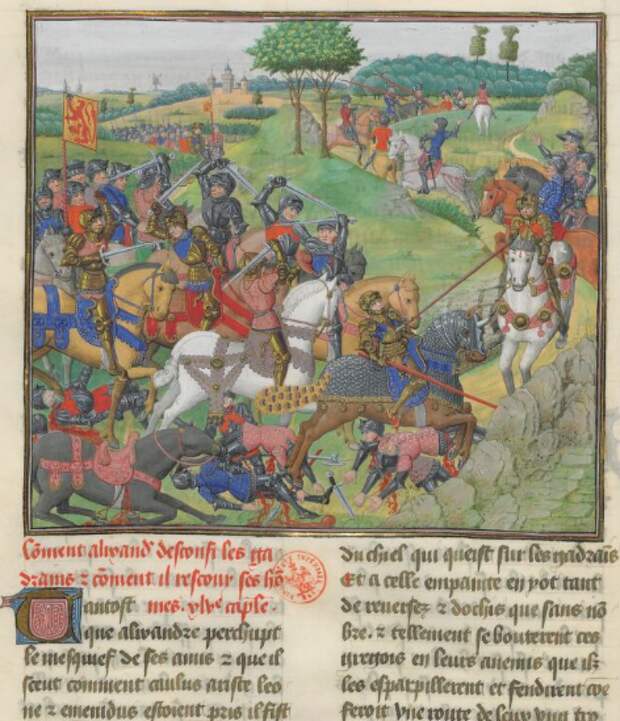 Coment alixand' desconfi les ga
drains & coment il rescour ses ho
mes. xlve caple.
Tantost
que alixandre perchupt
le meschief de ses amis & que il
sceut comment caulus ariste leo
ne & emenidus estoient pris il fist
du chiel qui queist sur les gadrains
Et a celle empainte en y ot tant
de reversez & dochis que sans no
bre. & tellement se bouterent ces
gregois en leurs anemis que ilz
les esparpillerent et fendirent coe
feroit une route de loup ung tro